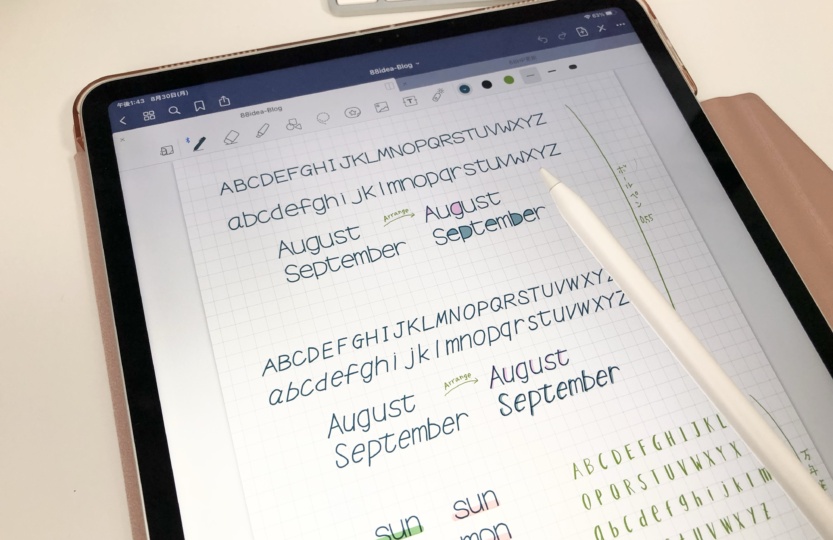 午後1:43 8月30日(月)
83%
BBidea-Blog
BBidea-Blog
ABCDEFGHIJKLMNOPQRSTUVWXYZ
abcdefghijklmnopqrstuvwxyz
August Arrange August
September September
ボールペン
0.55
ABCDEFGHIJKLMNOPQRSTUVWXYZ
abcdefghijklmnopqrstuvwxyz
August Arrange August
September September
ABCDEFGHIJKL
OPQRSTUVWXYX
abcdefghijklm
TUVWXYZ
sun sun
mon